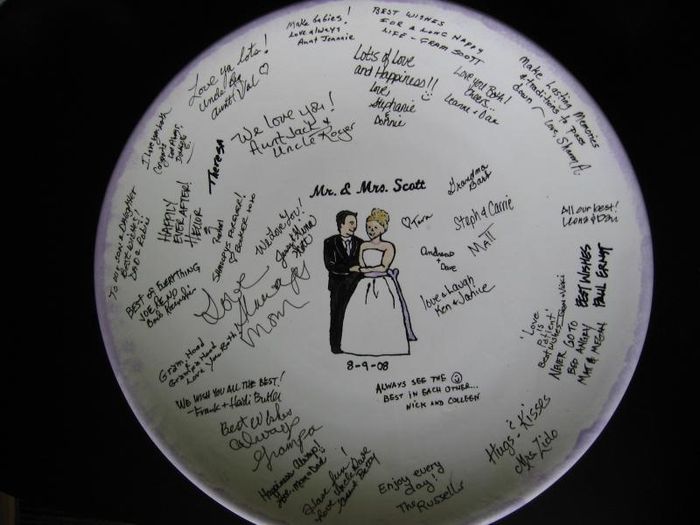 Make babies!
Love always
Aunt Jeannie
BEST WISHES
FOR A LONG HAPPY
LIFE - GRAM SCOTT
Love ya lots!
Uncle Ray
Aunt Val ♡
Lots of Love
and Happiness!!
Love,
Stephanie
&
Donnie
Love you Both!
Cheers...
Leanne + Dan
Make Lasting Memories
& traditions to pass
down ~
Love, Sharon A.
I love you both
Congrats
Theresa
We love you!
Aunt Jack &
Uncle Roger
Mr. & Mrs. Scott
Grandma
Barb
♡ Tara
Steph & Carrie
MATT
Andrew
+
Dave
love & laugh
Ken & Janice
All our best!
BEST WISHES
PAUL ERNST
HAPPILY
EVER AFTER!
TO MY SON & DAUGHTER
BEST WISHES!
BEST OF EVERYTHING
We love you!
Love
Always
Mom
Gram Hand
&
Grampa Hand
Love you Both!
'Love
is
Patient'
Best Wishes
NEVER GO TO
BED ANGRY
MAT & MEGAN
8-9-08
ALWAYS SEE THE ☺
BEST IN EACH OTHER...
NICK AND COLLEEN
WE WISH YOU ALL THE BEST!
- Frank + Heidi Butler
Best Wishes
Always
Grampa
Happiness Always!
Love Mom & Dad
Have fun!
Love Uncle Dave
Aunt Betty
Enjoy every
day!
The Russells
Hugs & Kisses
Mrs. Zido